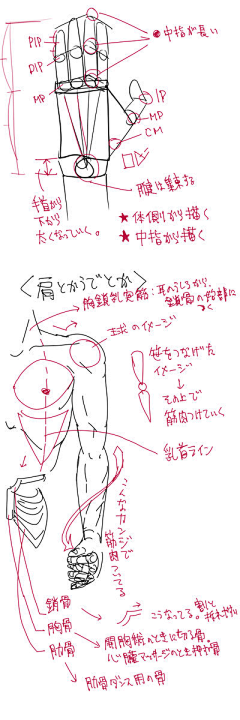 ●中指が長い
PIP
DIP
MP
IP
MP
CM
手首から
下から
太くなっていく。
腱は集まる
★体側から描く
★中指から描く
<肩とかうでとか>
胸鎖乳突筋:耳のうしろから、
鎖骨の始部に
つく
球のイメージ
笹をつなげた
イメージ
↓
その上で
筋肉つけていく
乳首ライン
こんなカンジで
筋肉ついてる
鎖骨
こうなってる。割と
胸骨
開胸術のときに切る骨。
心臓マッサージのとき押す骨
肋骨
肋骨ダンス用の骨